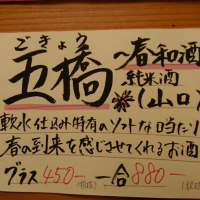 ごきょう
五橋 ~春和酒
純米酒
(山口)
軟水仕込み特有のソフトな口当たり
春の到来を感じさせてくれるお酒
グラス 450- (税抜) 一合 880- (税抜)